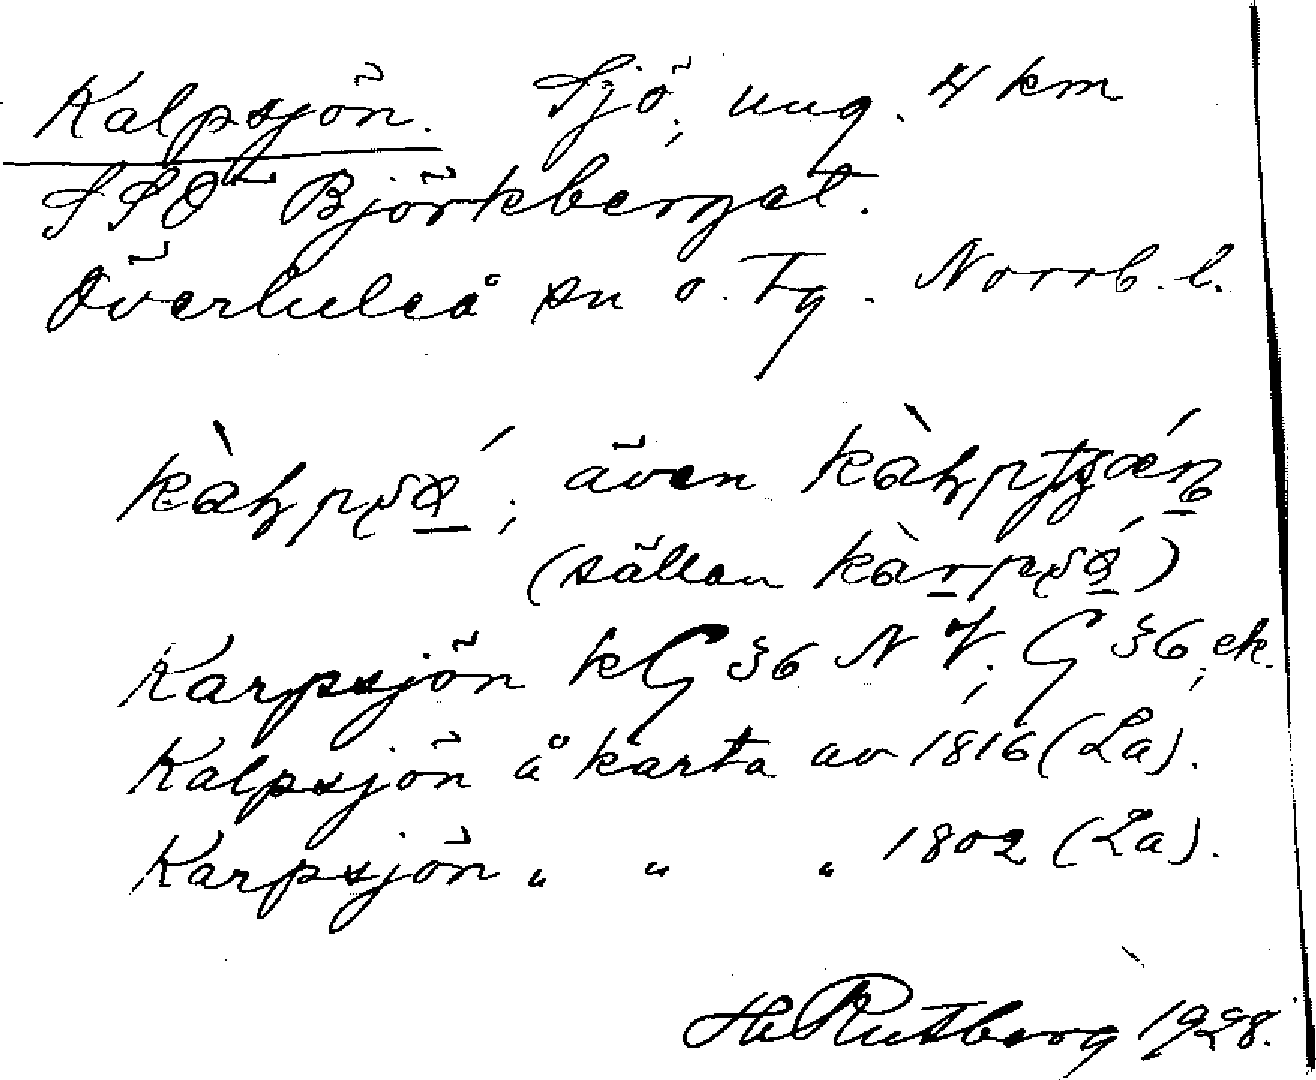 Kalpsjön. Sjö, ung. 4 km
SSO Björkberget.
Överluleå sn o. Tg. Norrb. l.
även
(sällan
Karpsjön kG 36 NV; G 36, ek.
Kalpsjön å karta av 1816 (La).
Karpsjön " " " 1802 (La).
Hj Rutberg 1928.